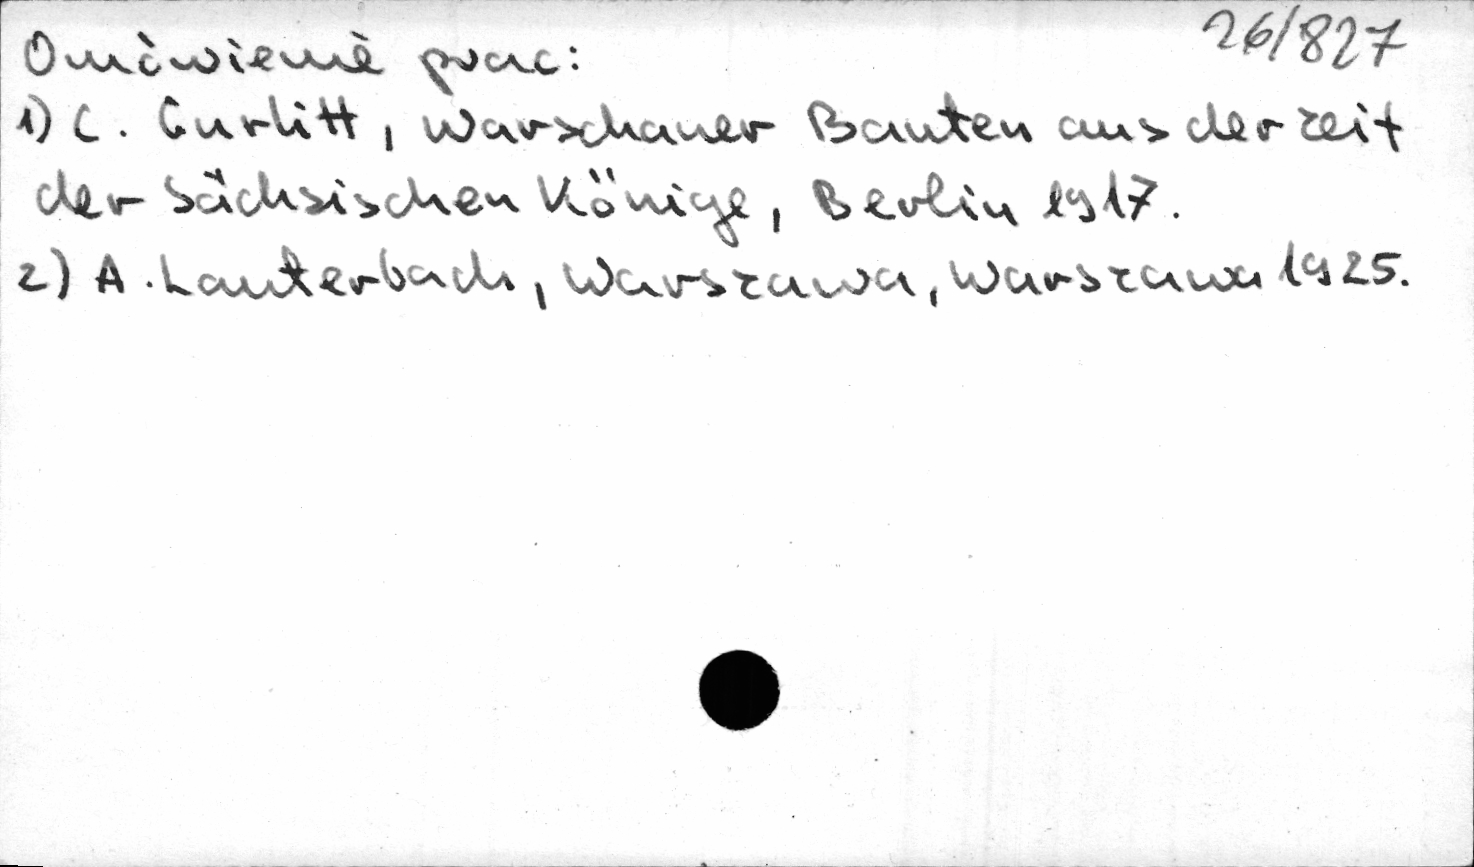 26/827
Omówienie prac:
1) C. Gurlitt, Warschauer Bauten aus der Zeit
der Sächsischen Könige, Berlin 1917.
2) A. Lauterbach, Warszawa, Warszawa 1925.